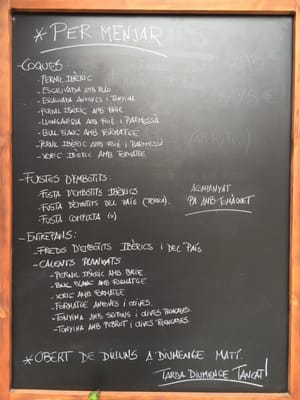 * PER MENJAR
- COQUES:
- PERNIL IBÈRIC
- ESCALIVADA AMB
- ESCALIVADA ANXOVES I TONYINA
- PERNIL IBÈRIC AMB BRIE
- LLONGANISSA AMB I PARMESSÀ
- BULL BLANC AMB FORMATGE
- PERNIL IBÈRIC AMB I PARMESSÀ
- XORIC IBÈRIC AMB FORMATGE
- FUSTES D'EMBOTITS:
FUSTA D'EMBOTITS IBÈRICS
FUSTA D'EMBOTITS DEL PAÍS (TERRA).
- FUSTA COMPLETA
ACOMPANYAT
PA AMB TOMÀQUET
- ENTREPANS:
- FREDS D'EMBOTITS IBÈRICS I DEL PAÍS
- CALENTS PLANXATS
- PERNIL IBÈRIC AMB BRIE.
- BULL BLANC AMB FORMATGE
- XORIC AMB FORMATGE
- FORMATGE ANXOVES I OLIVES.
- TONYINA AMB I OLIVES TRINXADES
- TONYINA AMB PEBROT I OLIVES TRINXADES.
* OBERT DE DILLUNS A DIUMENGE MATÍ.
TARDA DIUMENGE TANCAT!